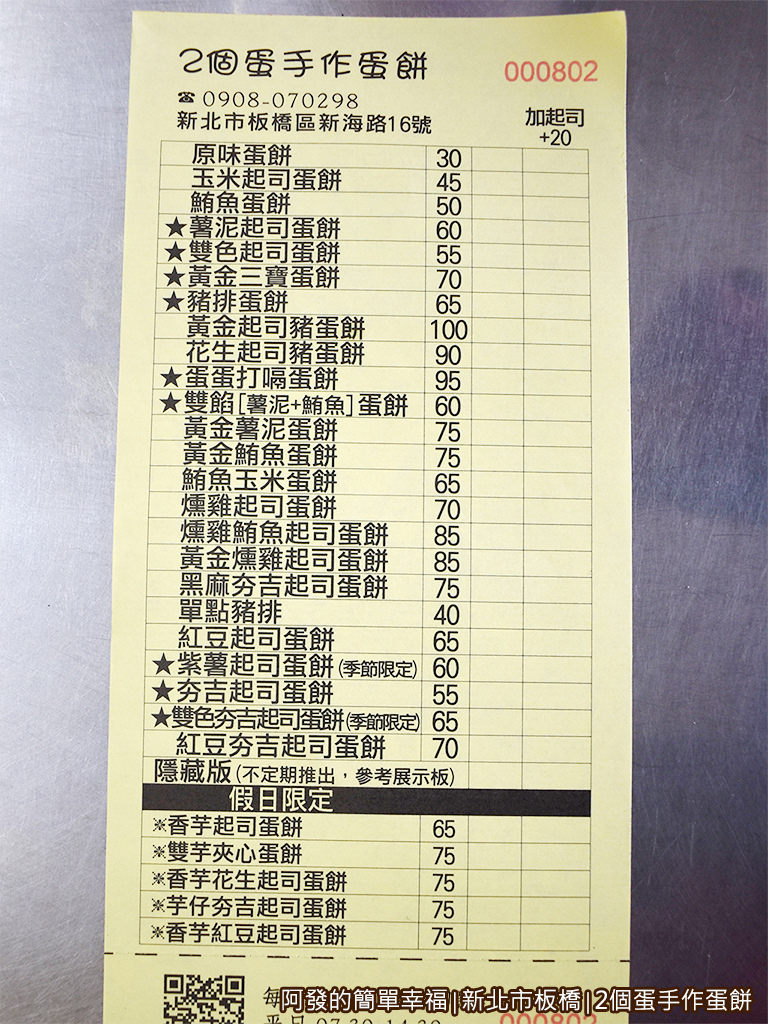 2個蛋手作蛋餅 000802
☎ 0908-070298
新北市板橋區新海路16號
加起司
+20
原味蛋餅 30
玉米起司蛋餅 45
鮪魚蛋餅 50
★薯泥起司蛋餅 60
★雙色起司蛋餅 55
★黃金三寶蛋餅 70
★豬排蛋餅 65
黃金起司豬蛋餅 100
花生起司豬蛋餅 90
★蛋蛋打嗝蛋餅 95
★雙餡[薯泥+鮪魚]蛋餅 60
黃金薯泥蛋餅 75
黃金鮪魚蛋餅 75
鮪魚玉米蛋餅 65
燻雞起司蛋餅 70
燻雞鮪魚起司蛋餅 85
黃金燻雞起司蛋餅 85
黑麻夯吉起司蛋餅 75
單點豬排 40
紅豆起司蛋餅 65
★紫薯起司蛋餅(季節限定) 60
★夯吉起司蛋餅 55
★雙色夯吉起司蛋餅(季節限定) 65
紅豆夯吉起司蛋餅 70
隱藏版(不定期推出，參考展示板)
假日限定
※香芋起司蛋餅 65
※雙芋夾心蛋餅 75
※香芋花生起司蛋餅 75
※芋仔夯吉起司蛋餅 75
※香芋紅豆起司蛋餅 75
每
平日 07:30-14:30
000802
阿發的簡單幸福|新北市板橋|2個蛋手作蛋餅